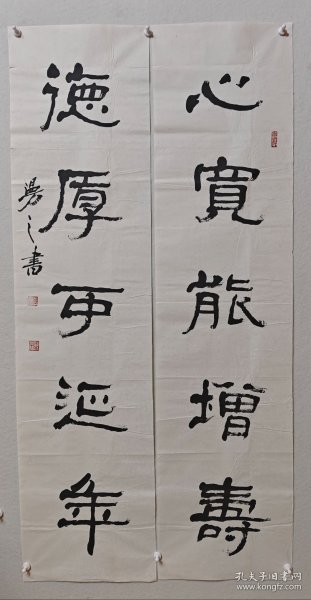 心寬能增壽
德厚可延年
易之書
孔夫子旧书网
www.kongfz.com